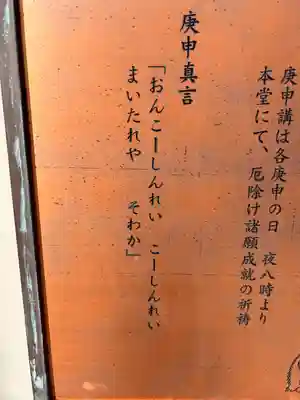 庚申講は各庚申の日 夜八時より
本堂にて、厄除け諸願成就の祈祷
庚申真言
「おんこーしんれい こーしんれい
まいたれや そわか」